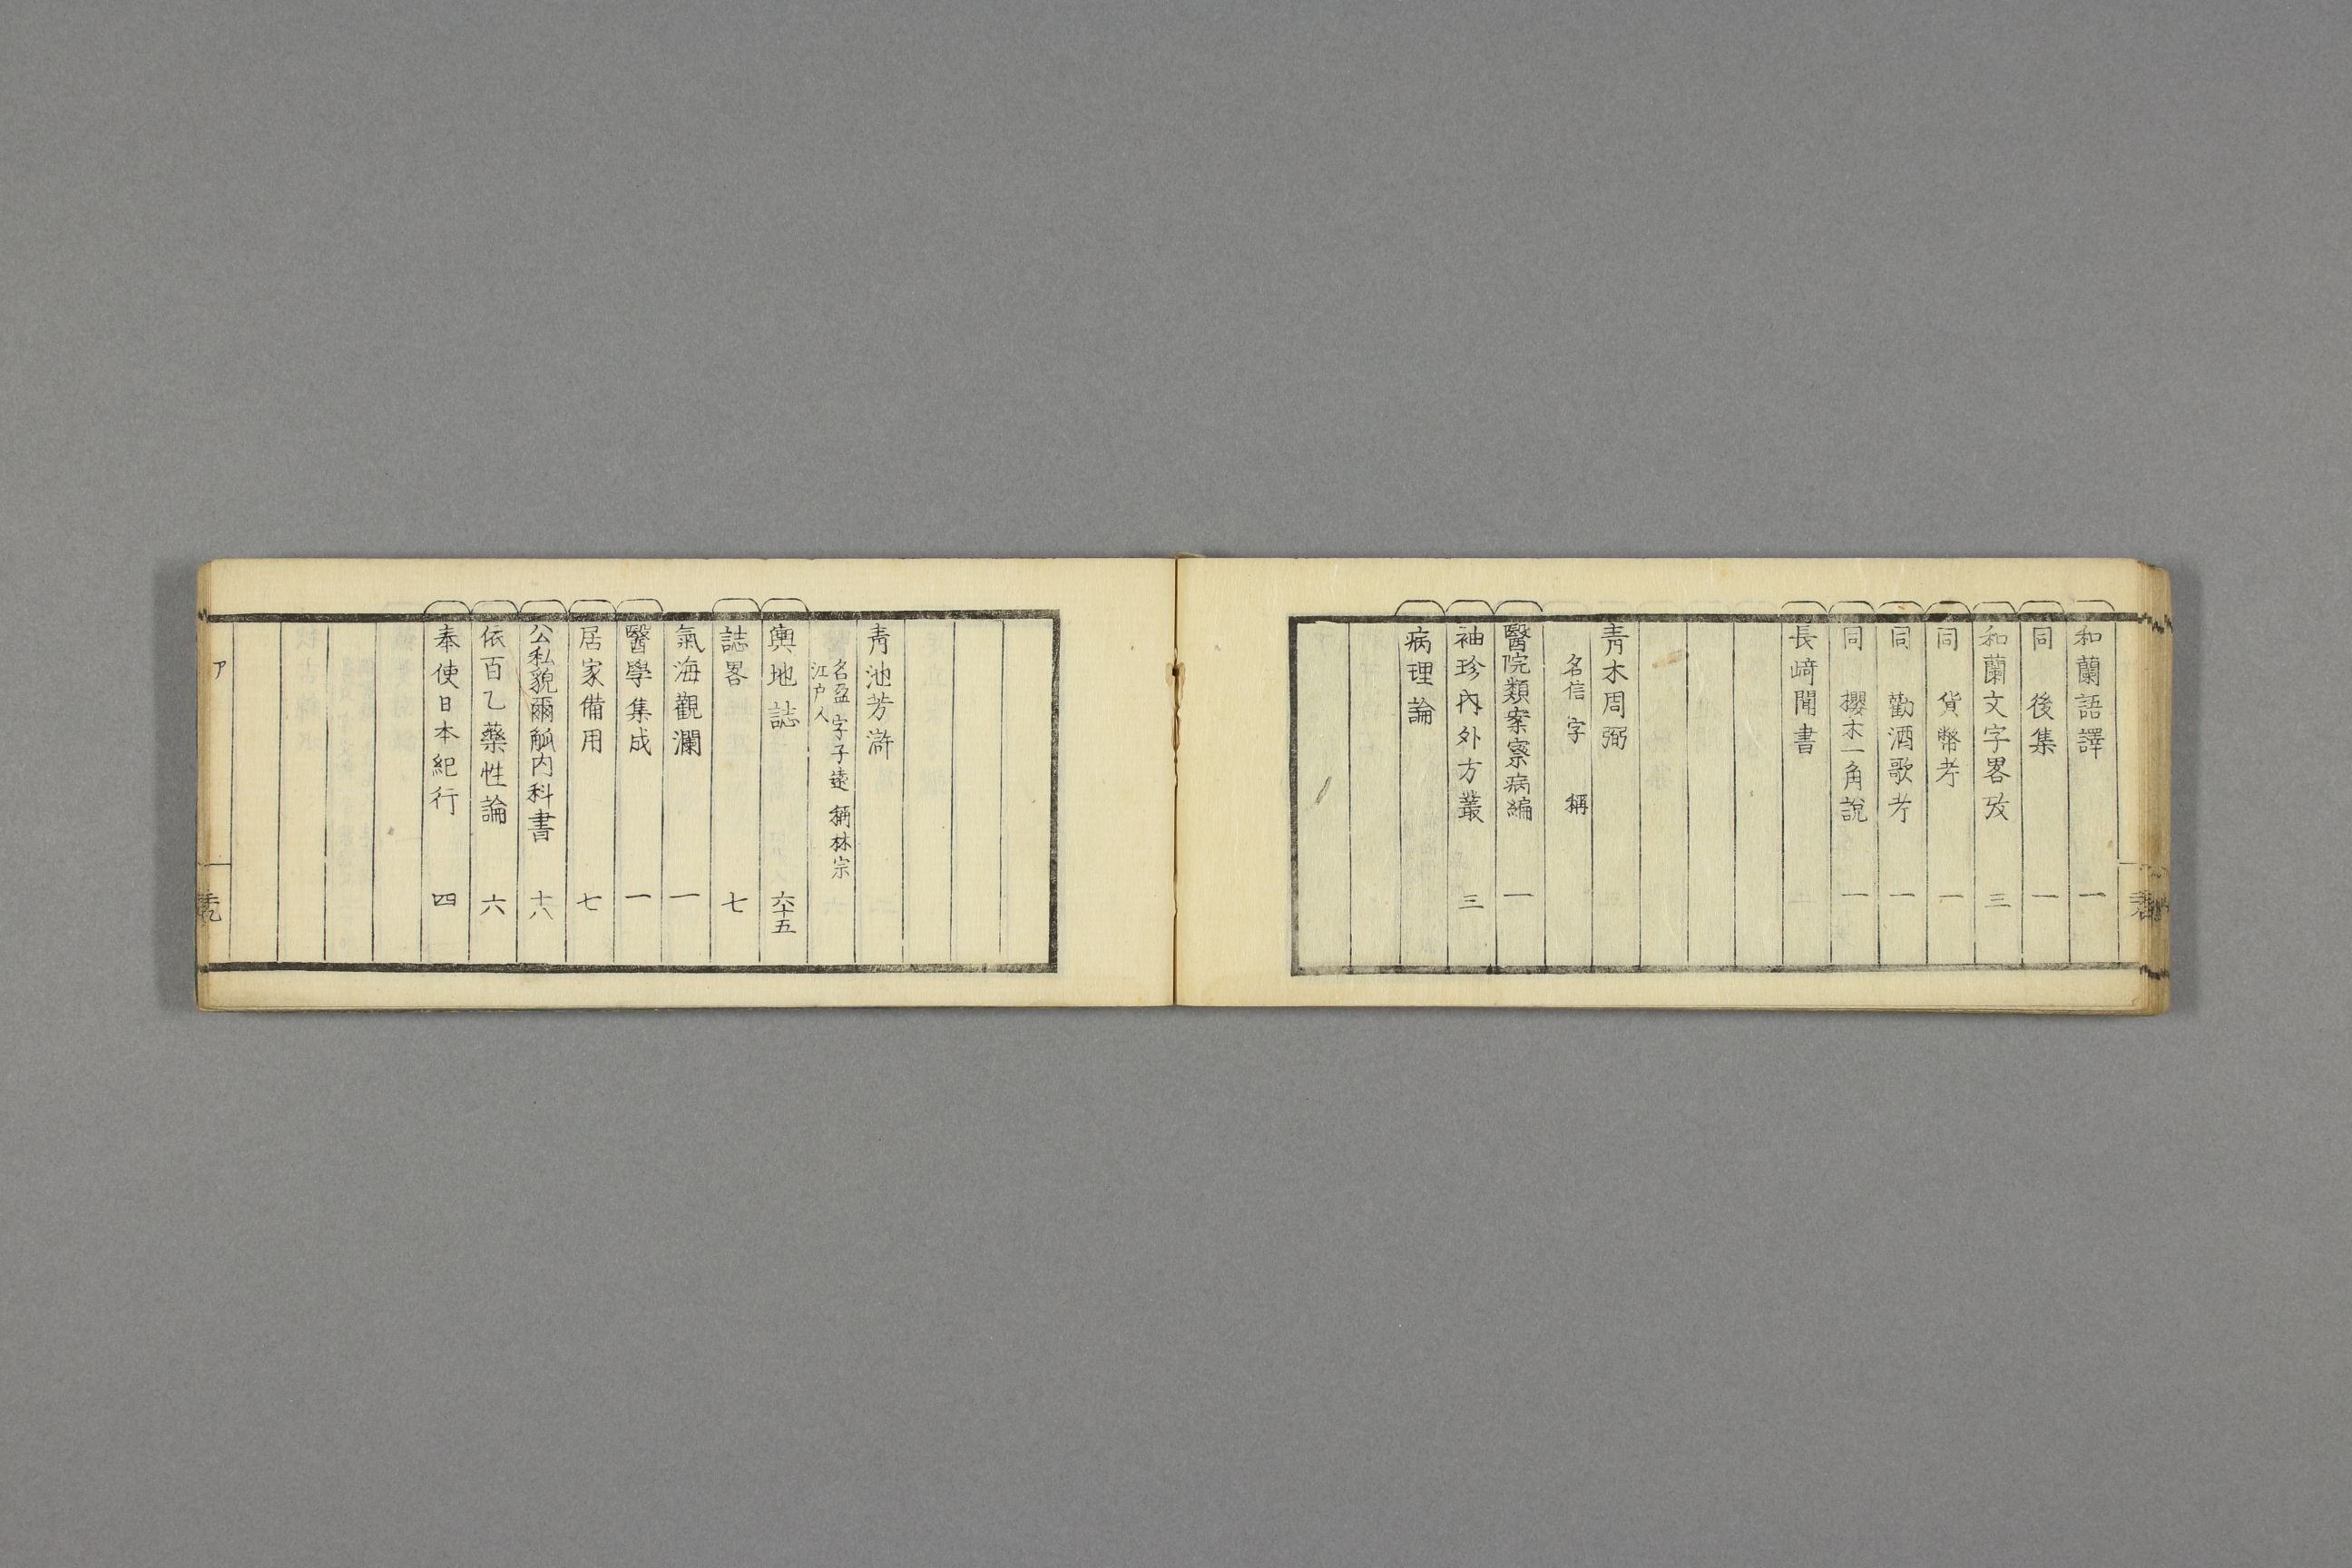 和蘭語譯 一
同 後集 一
和蘭文字畧攷 三
同 貨幣考 一
同 勸酒歌考 一
同 櫻木一角說 一
長﨑聞書
青木周弼
名信 字 稱
醫院類案察病編 一
袖珍內外方叢 三
病理論
青池芳滸
名盈 字子遠 稱林宗
江户人
輿地誌 六十五
誌畧 七
氣海觀瀾 一
醫學集成 一
居家備用 七
公私貌爾觚内科書 十八
依百乙藥性論 六
奉使日本紀行 四
ア